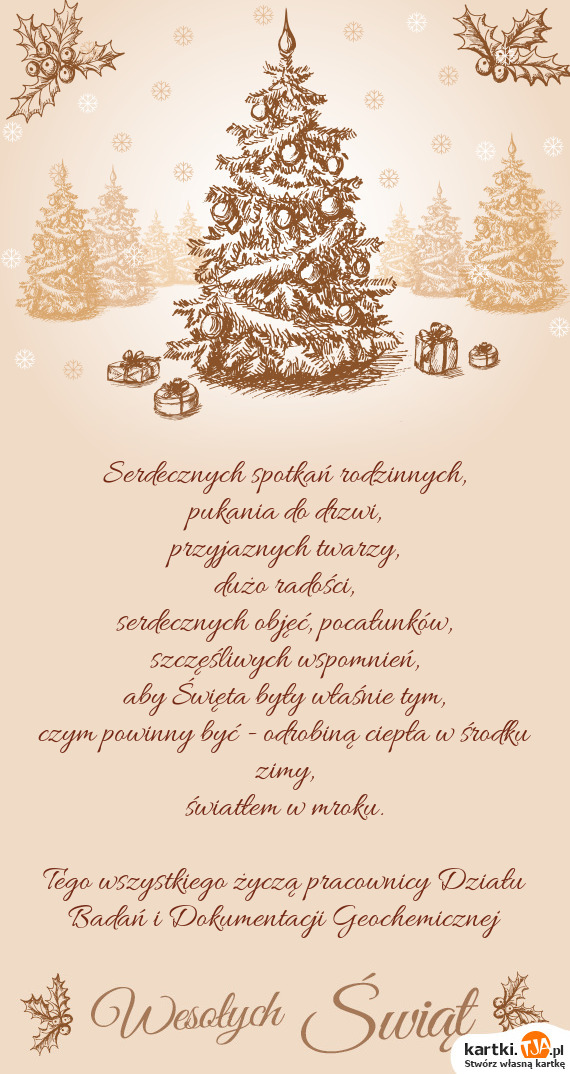 Serdecznych spotkań rodzinnych,
pukania do drzwi,
przyjaznych twarzy,
dużo radości,
serdecznych objęć, pocałunków,
szczęśliwych wspomnień,
aby Święta były właśnie tym,
czym powinny być - odrobiną ciepła w środku
zimy,
światłem w mroku.
Tego wszystkiego życzą pracownicy Działu
Badań i Dokumentacji Geochemicznej
Wesołych Świąt
kartki.TJA.pl
Stwórz własną kartkę